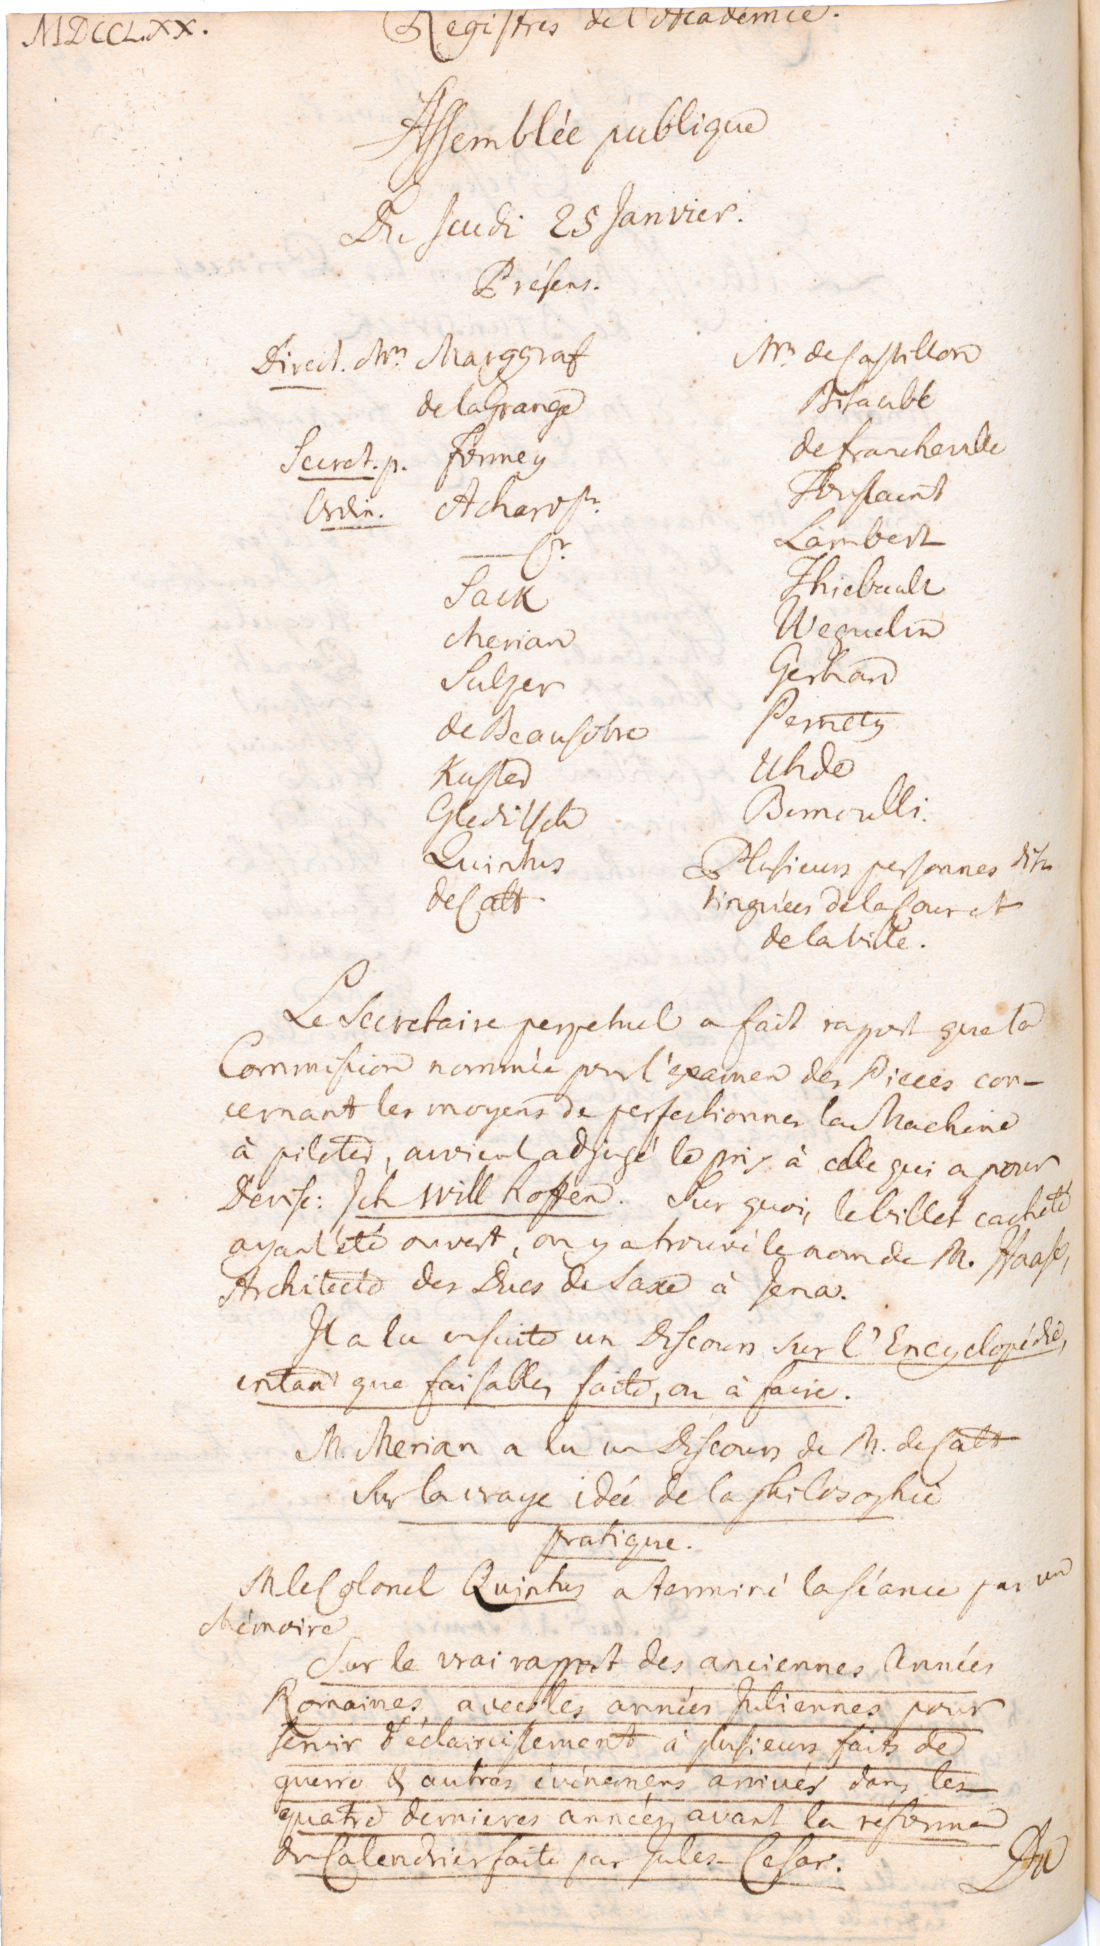 MDCCLXX.
Registres de l'Academie.
Assemblée publique
Du Jeudi 25 Janvier.
Présens.
Direct. Mrs. Marggraf
de la Grange
Secret. p. Formey
Ordin. Achard sr.
—— jr.
Sack
Merian
Sulzer
de Beausobre
Kuster
Gleditsch
Quintus
de Catt
Mrs. de Castillon
Bitaubé
de francheville
Toussaint
Lambert
Thiebault
Weguelin
Gerhard
Pernety
Uhde
Bernoulli.
Plusieurs personnes dis-
tinguées de la Cour et
de la Ville.
Le Secretaire perpetuel a fait rapport que la
Commission nommée pour l'examen des Pieces con-
cernant les moyens de perfectionner la Machine
à piloter, avoient adjugé le prix à celle qui a pour
Devise: Ich will hoffen. Sur quoi, le billet cacheté
ayant été ouvert, on y a trouvé le nom de M. Haase,
Architecte des Ducs de Saxe à Jena.
Il a lu ensuite un Discours sur l'Encyclopédie,
entant que faisable, faite, ou à faire.
M. Merian a lu un Discours de M. de Catt
Sur la vraye idée de la philosophie
pratique.
M. le Colonel Quintus a terminé la séance par un
Mémoire
Sur le vrai rapport des anciennes Années
Romaines, avec les années Juliennes pour
servir d'éclaircissement à plusieurs faits de
guerre & autres événemens arrivés dans les
quatre dernieres années avant la réforme
du Calendrier faite par Jules-Cesar.
Du